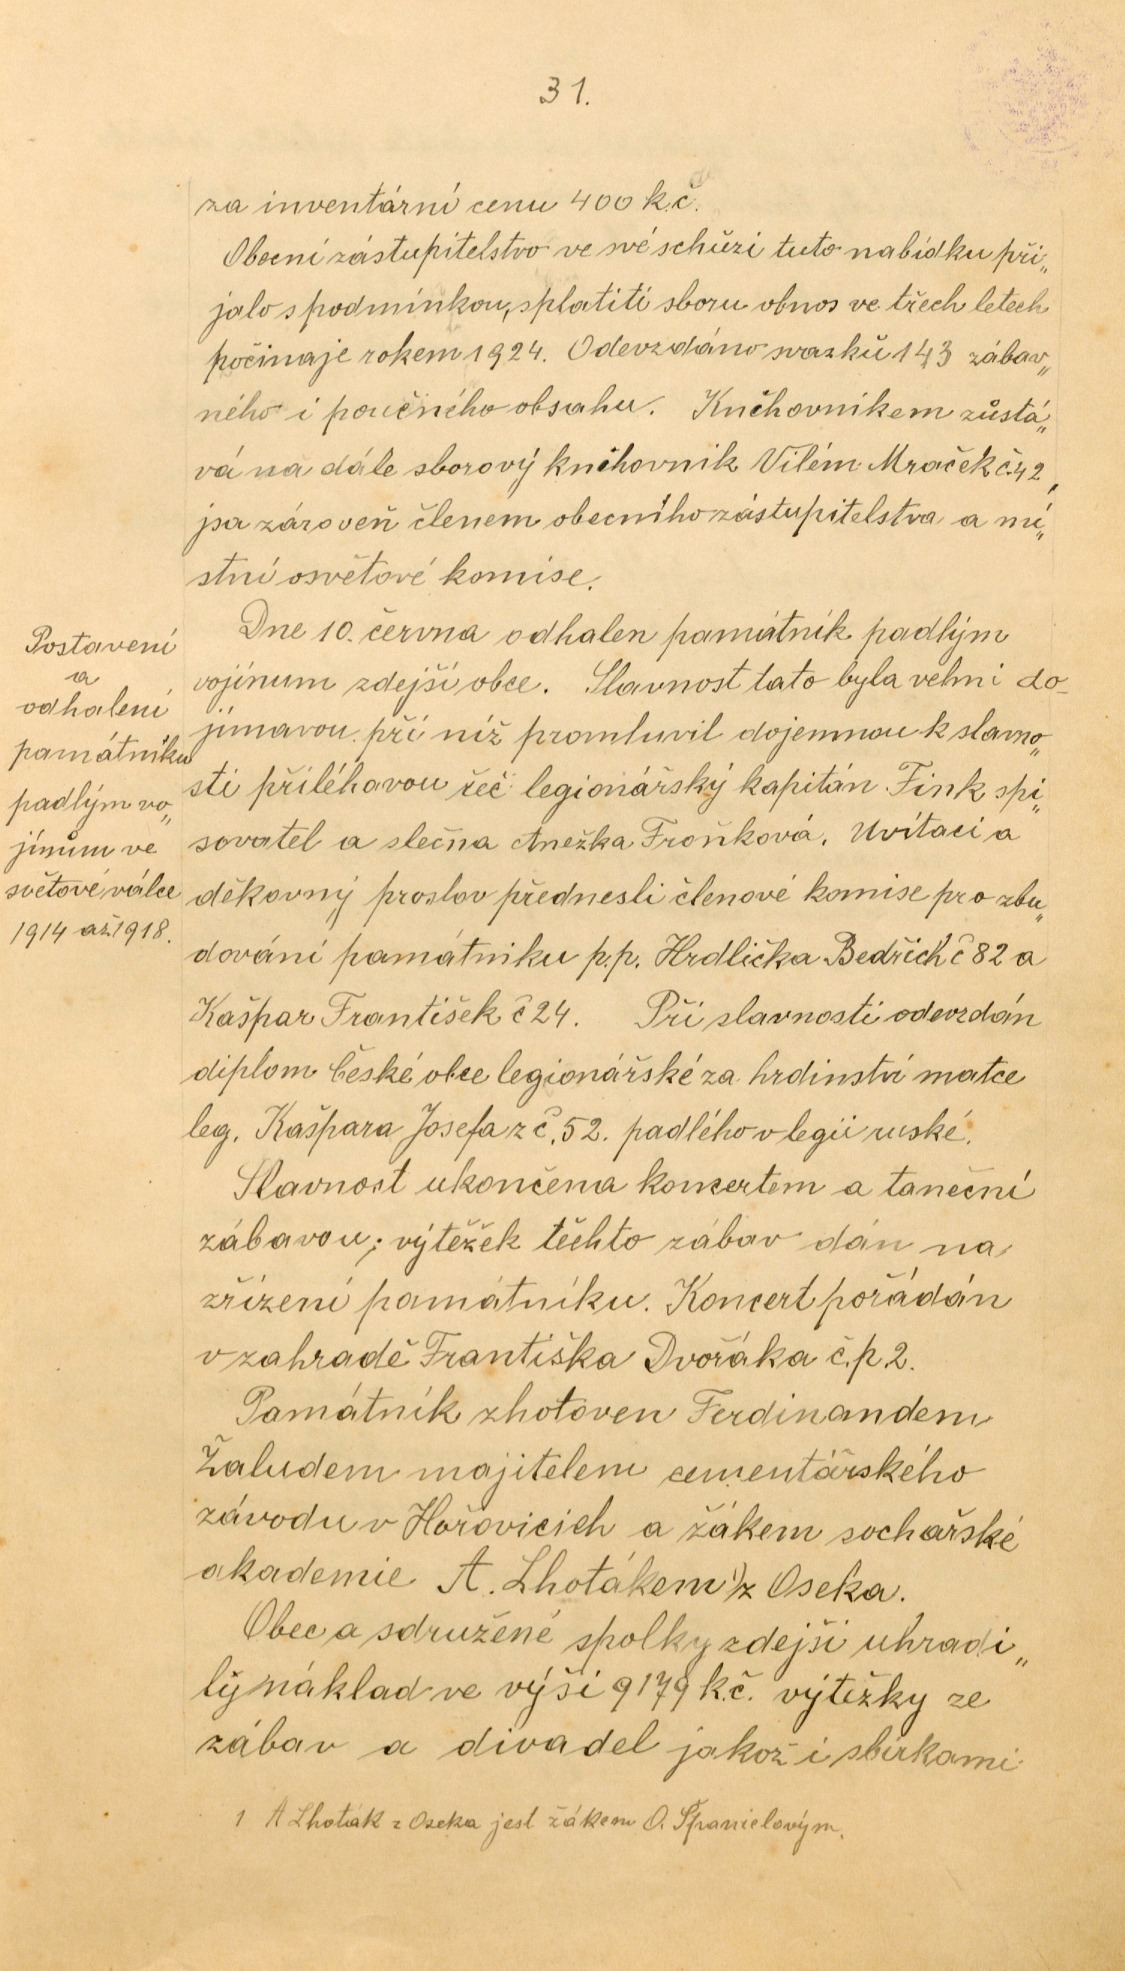 31.
za inventární cenu 400 k.č.
Obecní zástupitelstvo ve své schůzi tuto nabídku při„
jalo s podmínkou, splatiti sboru obnos ve třech letech
počínaje rokem 1924. Odevzdáno svazků 143 zábav„
ného i poučného obsahu. Knihovníkem zůstá„
vá na dále sborový knihovník Vilém Mraček č.42,
jsa zároveň členem obecního zástupitelstva a mí„
stní osvětové komise.
Postavení
a
odhalení
památníku
padlým vo„
jínům ve
světové válce
1914 až 1918.
Dne 10. června odhalen památník padlým
vojínum zdejší obce. Slavnost tato byla velmi do-
jímavou při níž promluvil dojemnou k slavno„
sti přiléhavou řeč legionářský kapitán Fink spi„
sovatel a slečna Anežka Froňková. Uvítací a
děkovný proslov přednesli členové komise pro zbu„
dování památníku p.p. Hrdlička Bedřich č 82 a
Kašpar František č 24. Při slavnosti odevzdán
diplom České obce legionářské za hrdinství matce
leg. Kašpara Josefa z č. 52. padlého v legii ruské.
Slavnost ukončena koncertem a taneční
zábavou; výtěžek těchto zábav dán na
zřízení památníku. Koncert pořádán
v zahradě Františka Dvořáka č.p. 2.
Památník zhotoven Ferdinandem
Žaludem majitelem cementářského
závodu v Hořovicích a žákem sochařské
akademie A. Lhotákem 1) z Oseka.
Obec a sdružené spolky zdejší uhradi„
ly náklad ve výši 9179 k.č. výtěžky ze
zábav a divadel jakož i sbírkami
1 A Lhoták z Oseka jest žákem O. Španielovým.